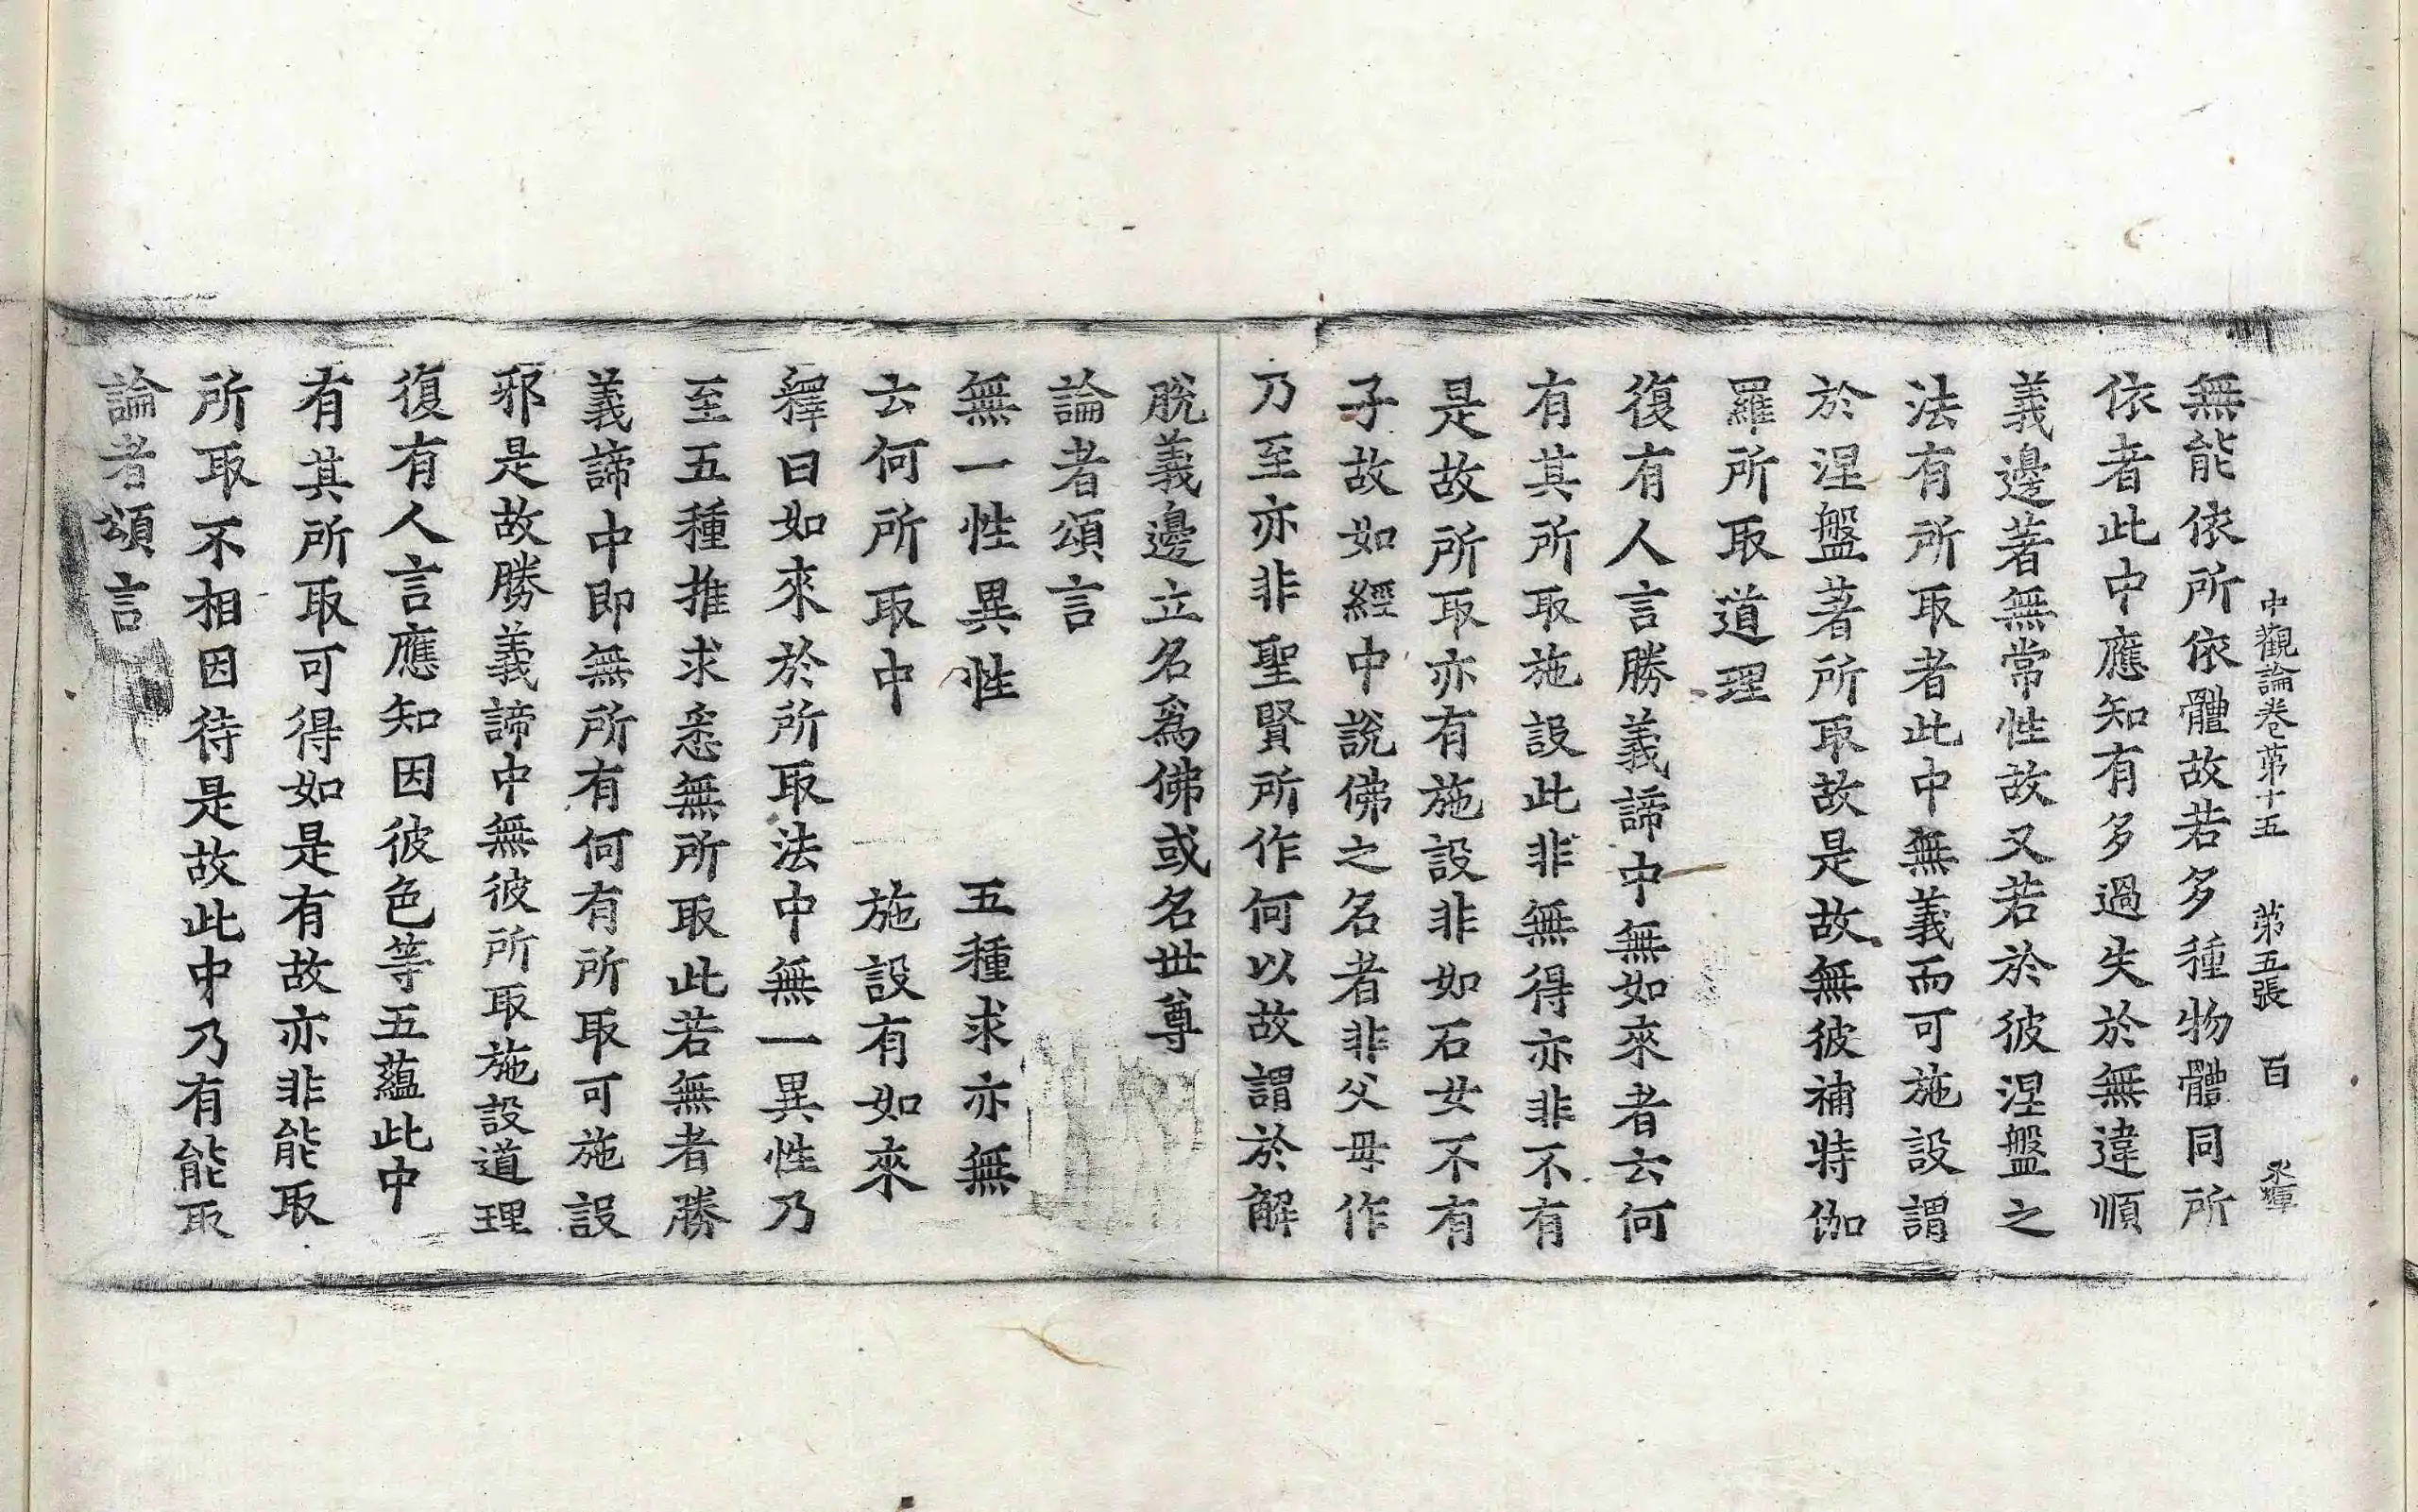 中觀論卷第十五 第五張 百
無能依所依體故若多種物體同所
依者此中應知有多過失於無違順
義邊著無常性故又若於彼涅盤之
法有所取者此中無義而可施設謂
於涅盤著所取故是故無彼補特伽
羅所取道理
復有人言勝義諦中無如來者云何
有其所取施設此非無得亦非不有
是故所取亦有施設非如石女不有
子故如經中說佛之名者非父母作
乃至亦非聖賢所作何以故謂於解
脫義邊立名爲佛或名世尊
論者頌言
無一性異性 五種求亦無
云何所取中 施設有如來
釋曰如來於所取法中無一異性乃
至五種推求悉無所取此若無者勝
義諦中即無所有何有所取可施設
邪是故勝義諦中無彼所取施設道理
復有人言應知因彼色等五蘊此中
有其所取可得如是有故亦非能取
所取不相因待是故此中乃有能取
論者頌言